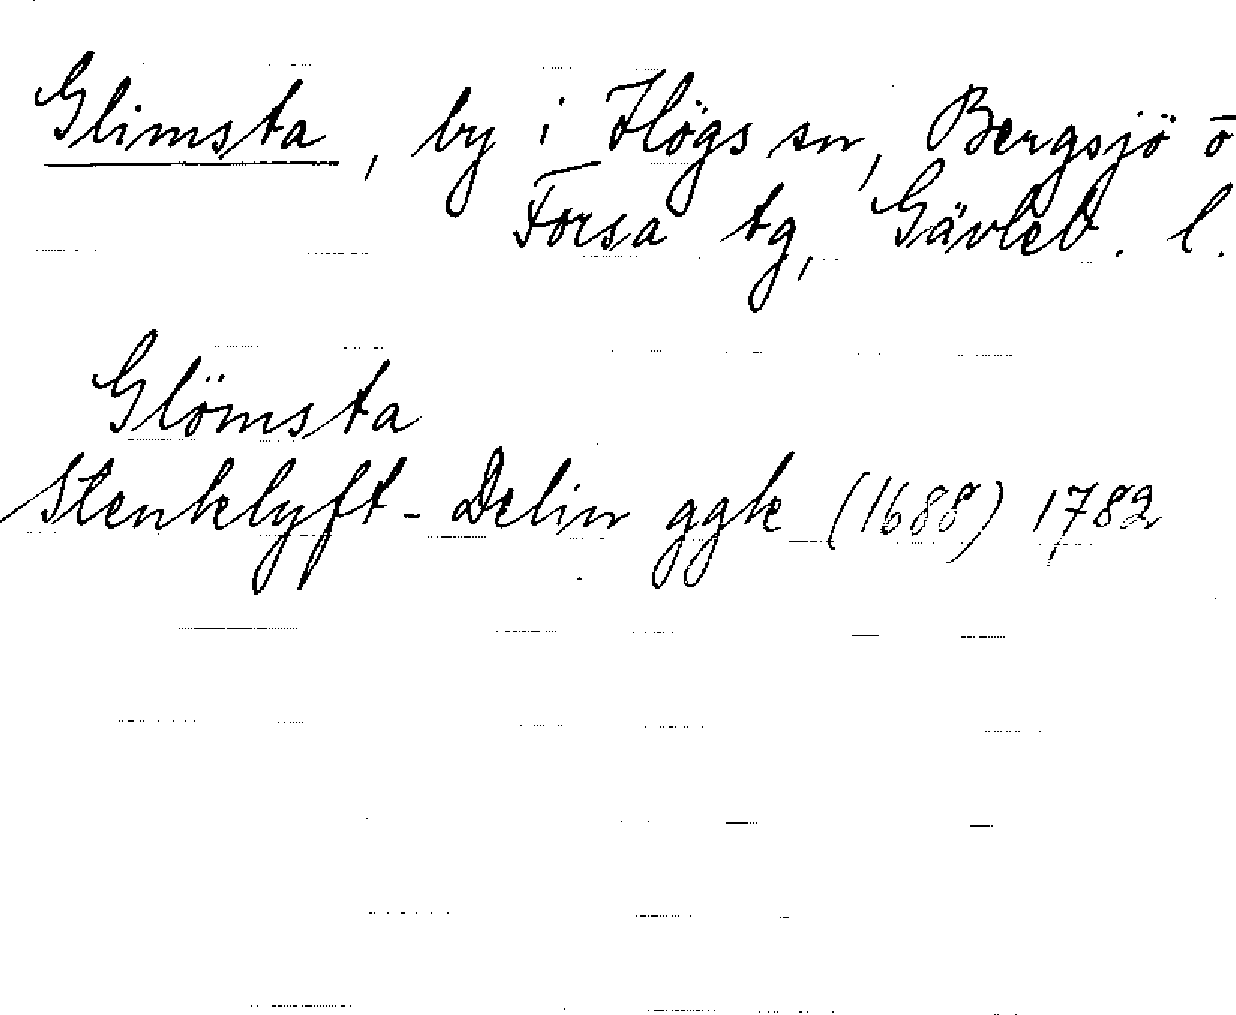 Glimsta, by i Högs sn, Bergsjö o
Forsa tg, Gävleb. l.
Glömsta
Stenklyft-Delin ggk (1688) 1782